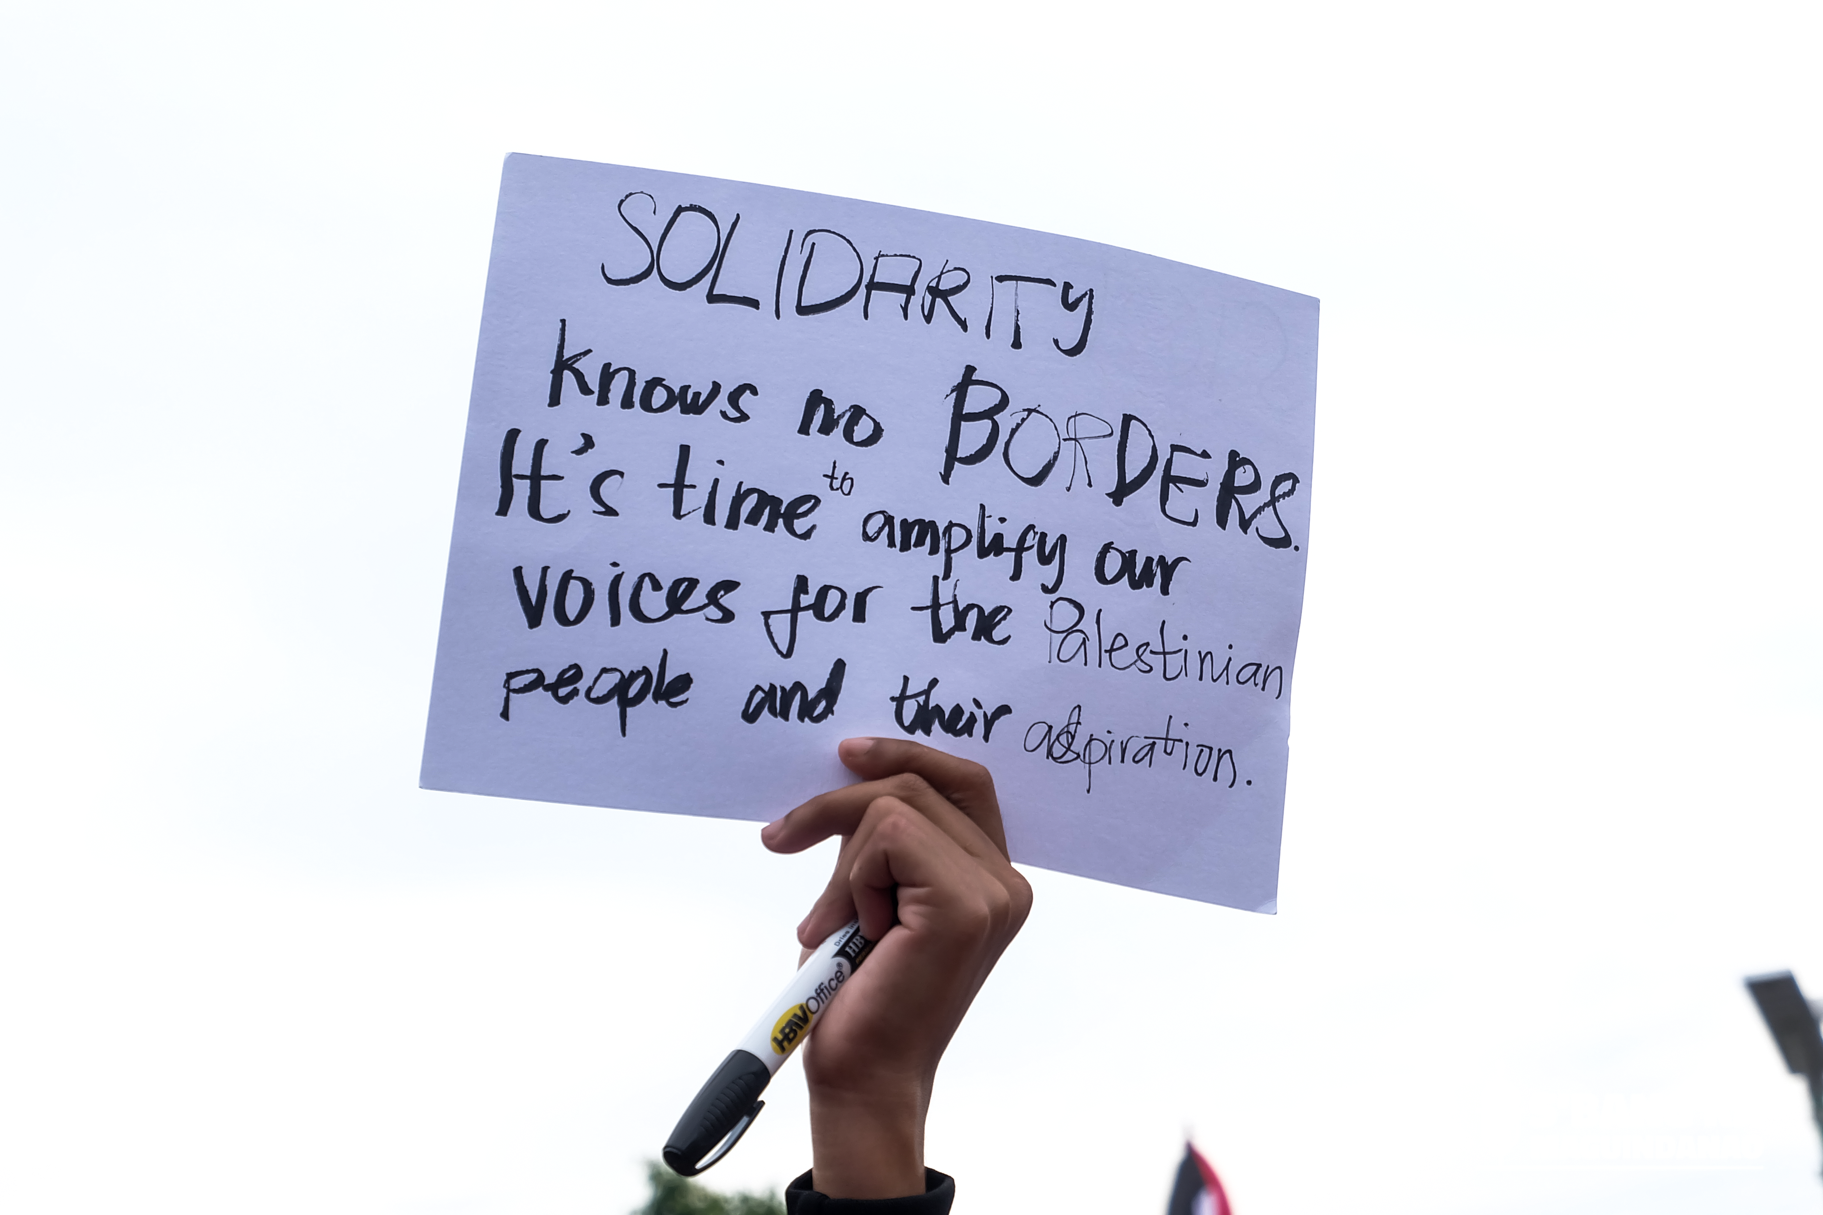 SOLIDARITY
knows no BORDERS.
It's time to amplify our
voices for the Palestinian
people and their aspiration.
HBW Office®